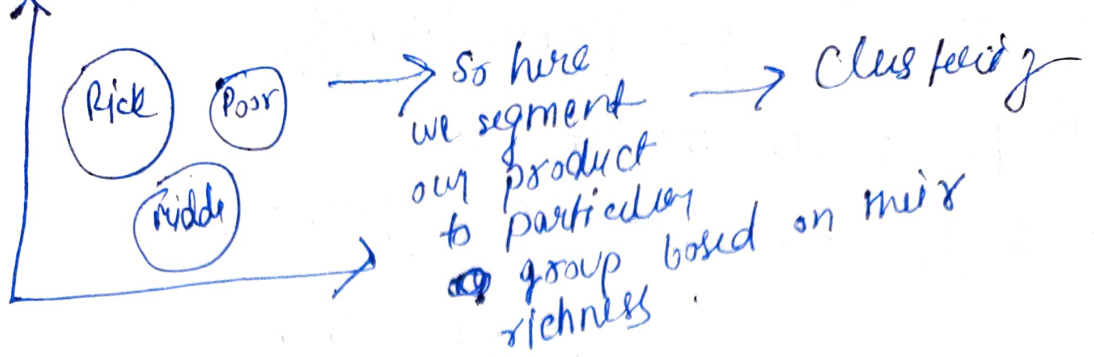 Rich
Poor
Middle
So here
we segment
our product
to particular
group based on their
richness.
Clustering